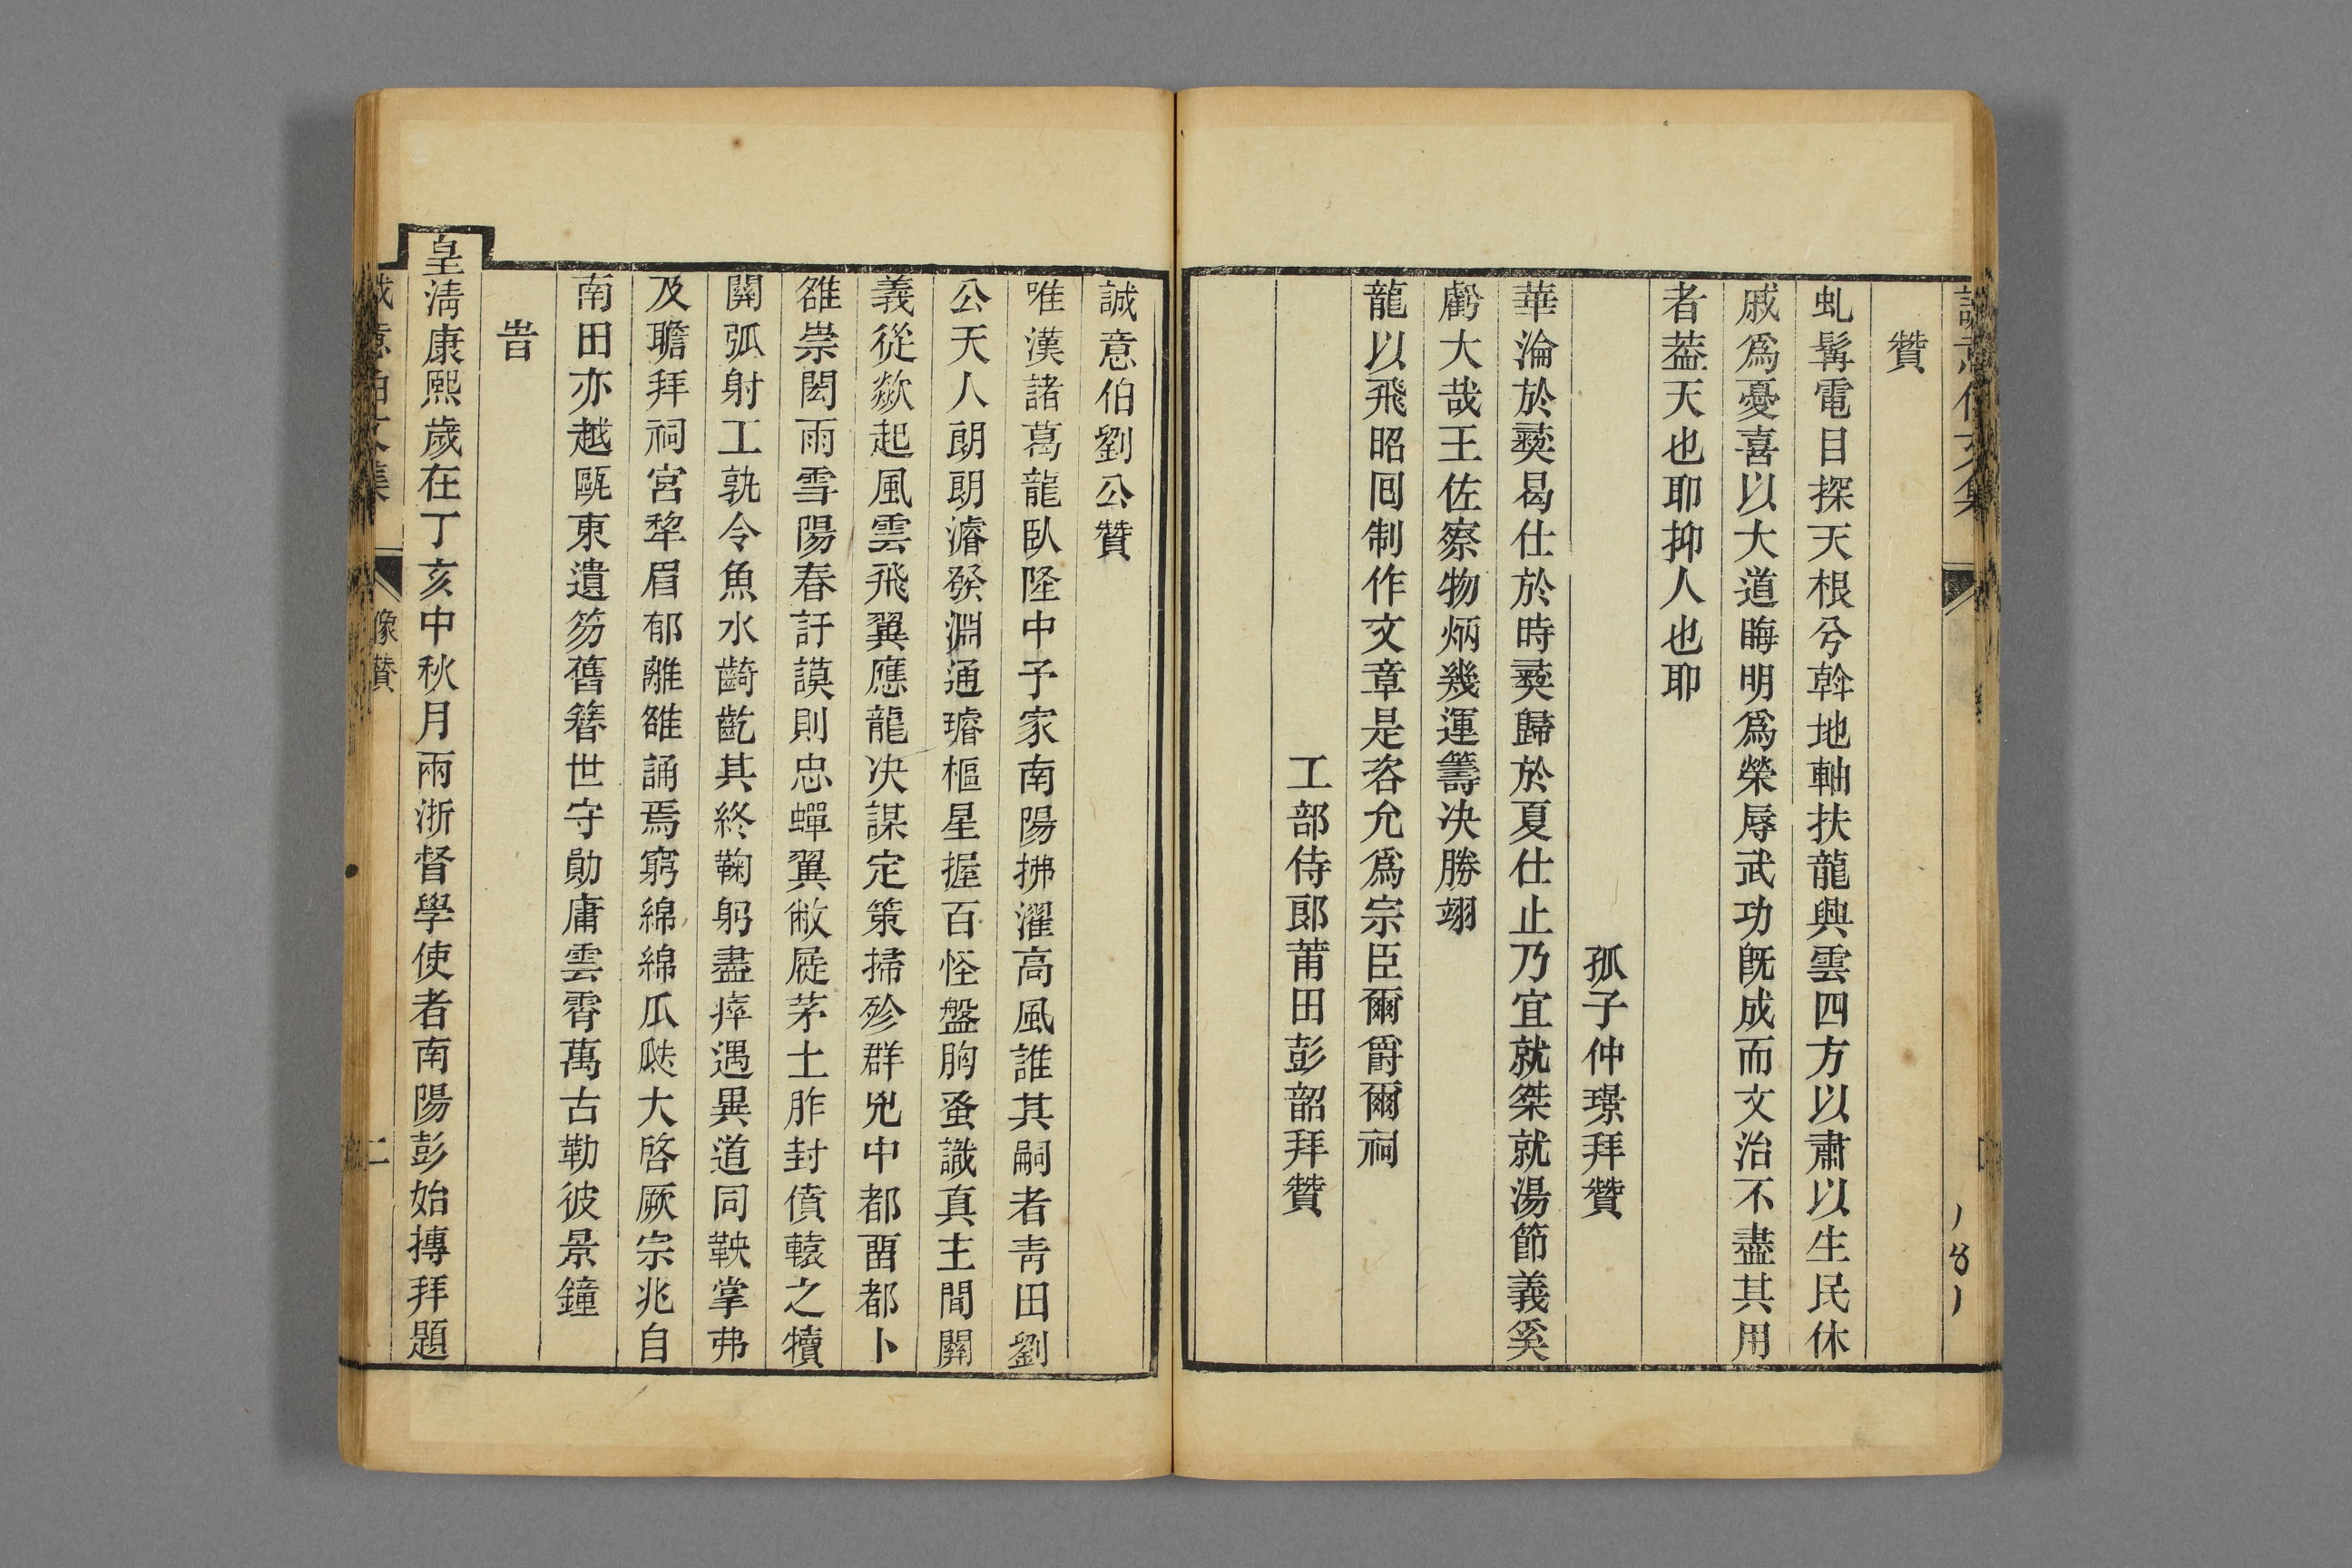 贊
虬髯電目探天根兮斡地軸扶龍興雲四方以肅以生民休
戚爲憂喜以大道晦明爲榮辱武功旣成而文治不盡其用
者葢天也耶抑人也耶
孤子仲璟拜贊
華淪於彞曷仕於時彞歸於夏仕止乃宜就桀就湯節義奚
虧大哉王佐察物炳幾運籌决勝翊
龍以飛昭囘制作文章是咨允爲宗臣爾爵爾祠
工部侍郎莆田彭韶拜贊
誠意伯劉公贊
唯漢諸葛龍臥隆中予家南陽拂濯高風誰其嗣者青田劉
公天人朗朗濬發淵通璿樞星握百怪盤胸蚤識真主間關
義從歘起風雲飛翼應龍决謀定策掃殄群兇中都畱都卜
雒崇閎雨雪陽春訏謨則忠蟬翼敝屣茅土胙封僨轅之犢
關弧射工孰令魚水齮齕其終鞠躬盡瘁遇異道同鞅掌弗
及瞻拜祠宮犂眉郁離雒誦焉窮綿綿瓜瓞大啓厥宗兆自
南田亦越甌東遺笏舊簪世守勛庸雲霄萬古勒彼景鐘
旹
皇清康熙歲在丁亥中秋月兩浙督學使者南陽彭始摶拜題
誠意伯文集
像贊
二